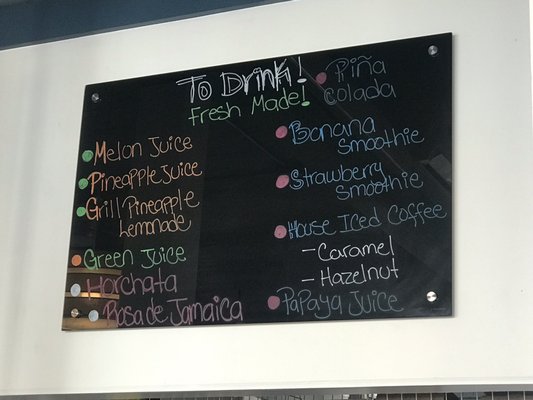 To Drink!
Fresh Made!
Melon Juice
Pineapple Juice
Grill Pineapple
Lemonade
Green Juice
Horchata
Rosa de Jamaica
Piña
Colada
Banana
Smoothie
Strawberry
Smoothie
House Iced Coffee
- Caramel
- Hazelnut
Papaya Juice